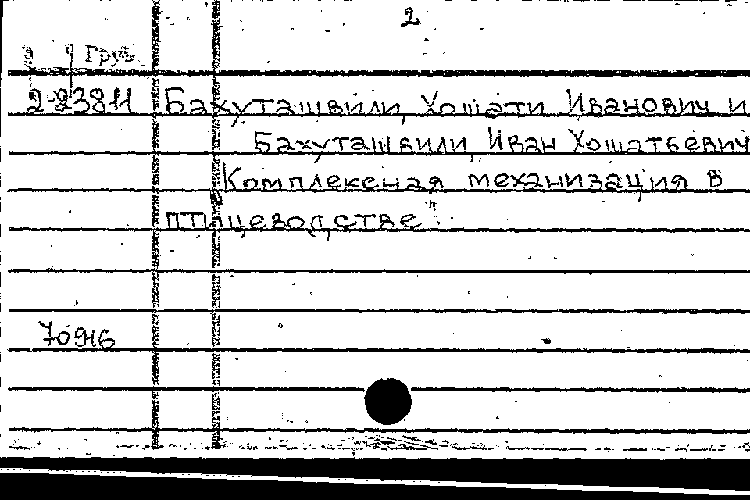 2
Груз
2-23811 Бахуташвили, Хошати Иванович и
Бахуташвили, Иван Хошатьевич
Комплексная механизация в
птицеводстве
70916